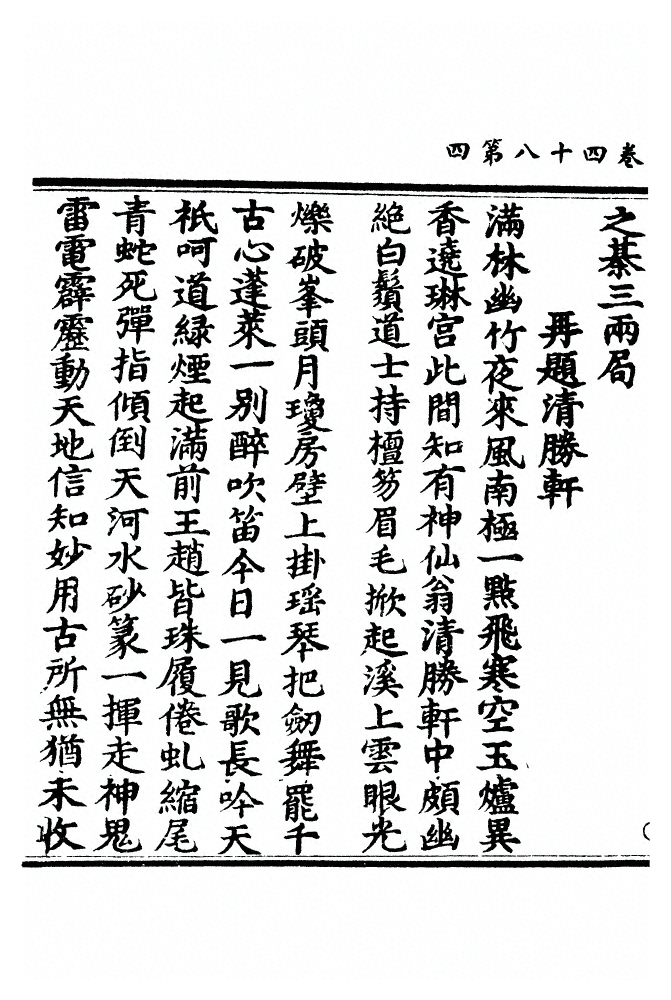 卷四十八第四
之棊三兩局
再題清勝軒
滿林幽竹夜來風南極一點飛寒空玉爐異
香遶琳宮此間知有神仙翁清勝軒中頗幽
絶白鬚道士持檀笏眉毛掀起溪上雲眼光
爍破峯頭月瓊房壁上掛瑶琴把劒舞罷千
古心蓬萊一别醉吹笛今日一見歌長吟天
祇呵道緑煙起滿前王趙皆珠履倦虬縮尾
青蛇死彈指傾倒天河水砂篆一揮走神鬼
雷電霹靂動天地信知妙用古所無猶未收